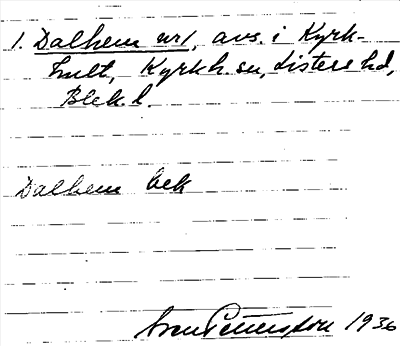 1. Dalhem nr1, avs. i Kyrk-
hult, Kyrkh. sn, Listers hd,
Blek. l.
Dalhem bek
Sven Pettersson 1936